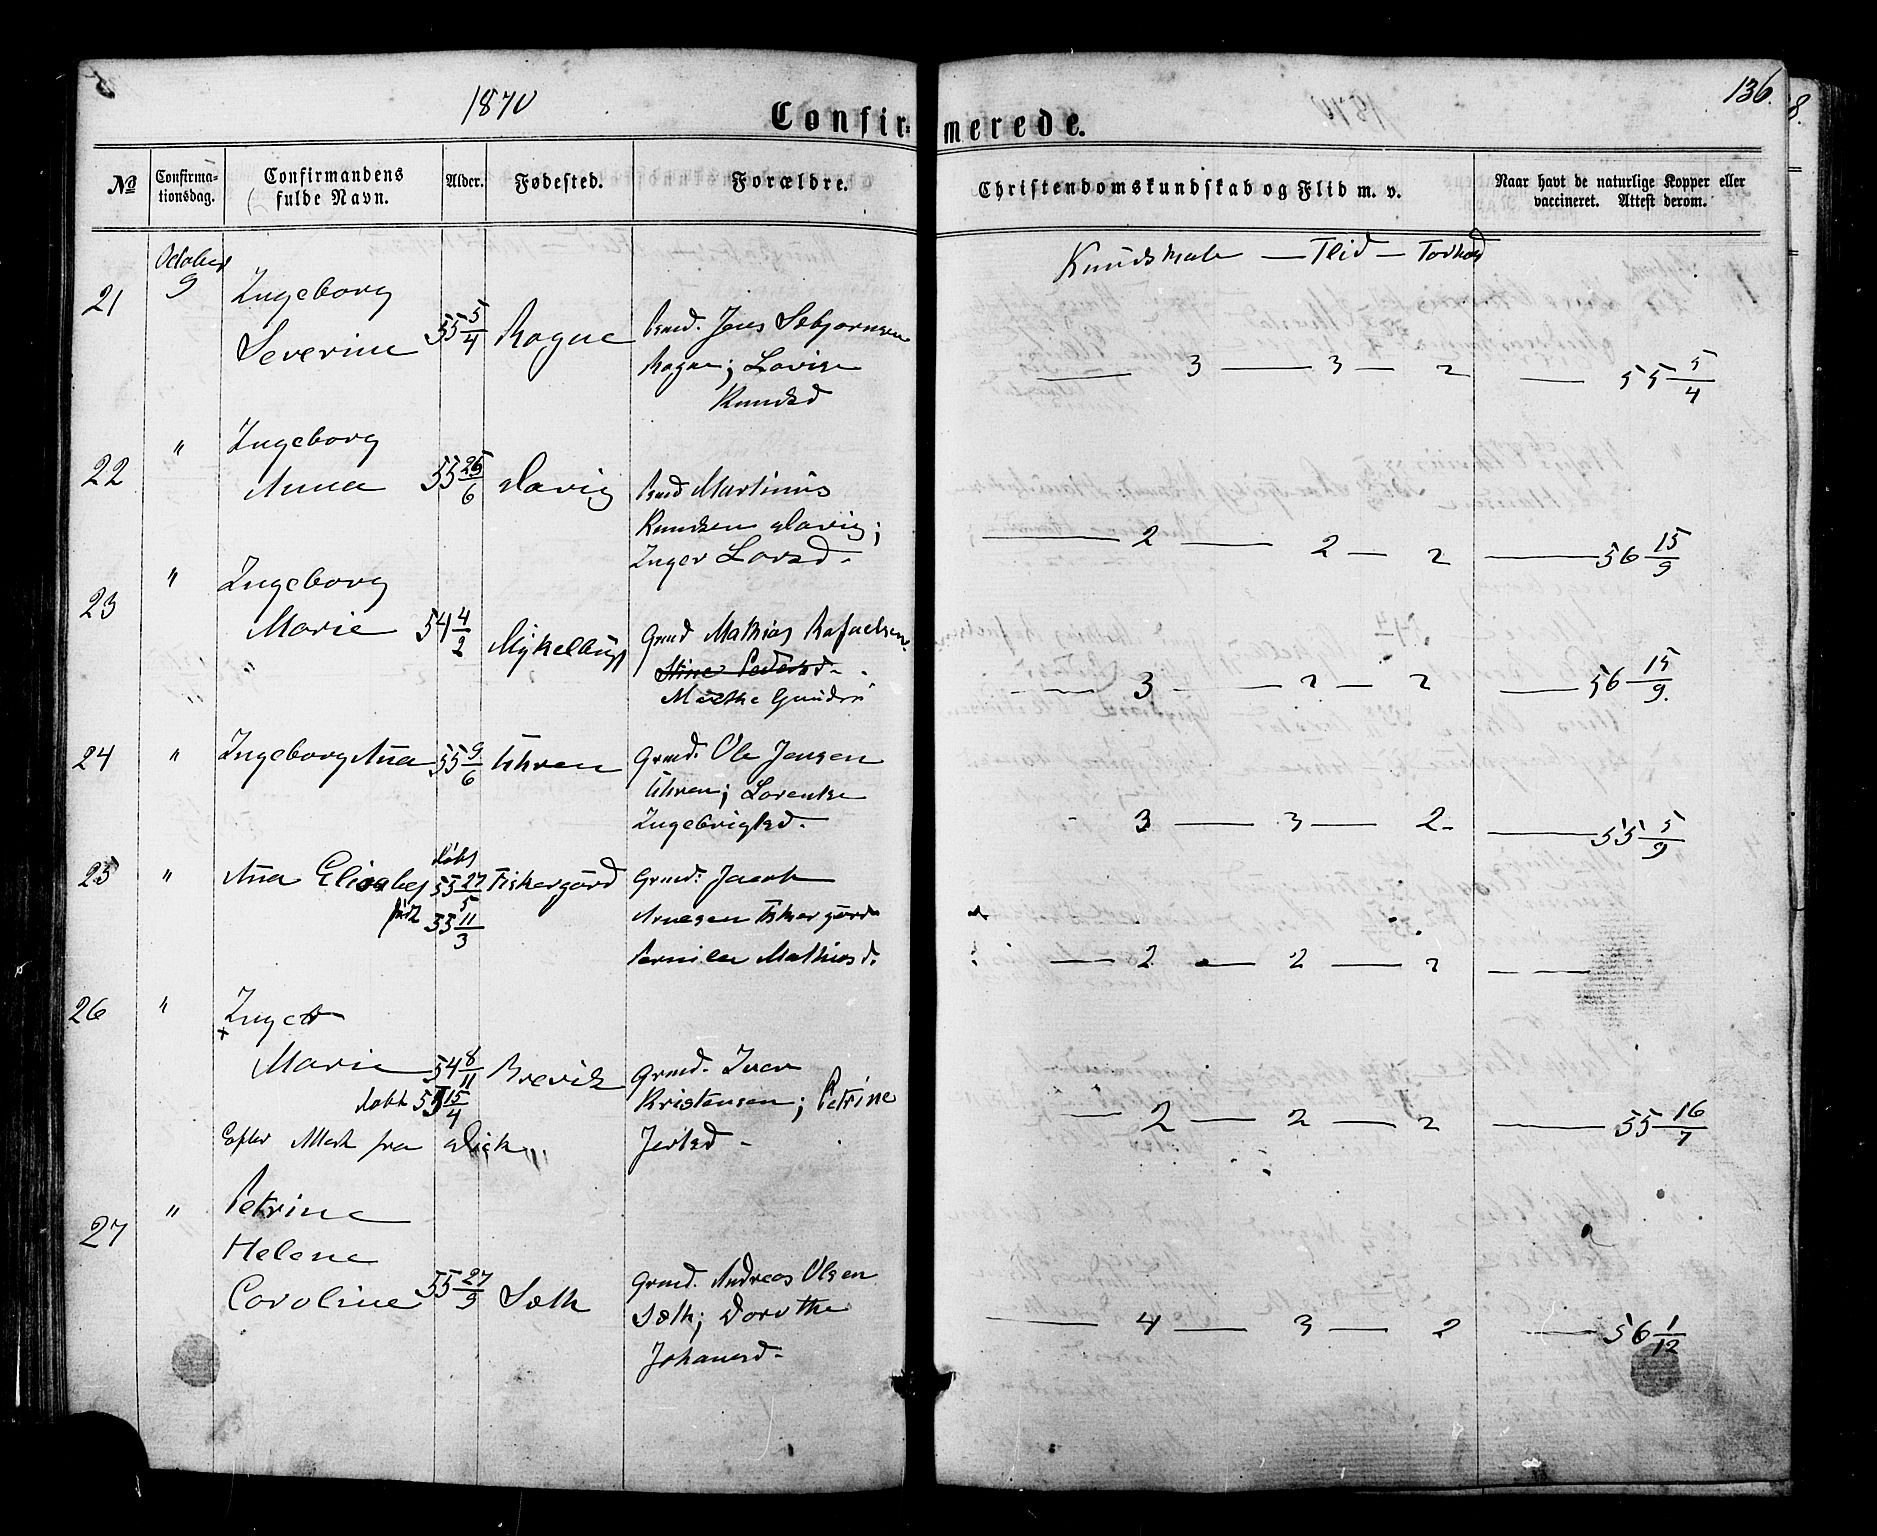 1870
136.
Confir=merede.
No
Confirma-
tionsdag.
Confirmandens
fulde Navn.
Alder.
Fødested.
Forældre.
Christendomskundskab og Flid m. v.
Naar havt de naturlige Kopper eller
vaccineret. Attest derom.
October
9
Kundskab — Flid —
21
Ingeborg
Severine
55 5/4
Rogne
Jens Sebjornsen
Rogne; Lovise
Knudsd
3 — 3 — 2 — 55 5/4
22 "
Ingeborg
Anna
55 26/6
Martinus
Knudsen
Inger Larsd.
2 — 2 — 2 — 56 15/9
23 "
Ingeborg
Marie
54 4/2
Mykelbust
Grmd Mathias Rafaelsen
Stine Pedersd.
3 — 2 — 2 — 56 15/9.
24 "
Ingeborg Ana
55 9/6
Uhren
Grmd. Ole Jensen
Uhren; Lorentse
Ingebrigtsd.
3 — 3 — 2 — 55 5/9
25 "
Ana Elisabet
døbt
55 27/5
født 55 11/3
Fiskergård
Grmd. Jacob
Arnesen Fiskergård
Pernille Mathiasd.
2 — 2 — 2 — —
26 "
Inger
Marie
54 8/11
døbt 55 15/4
Brevik
Grmd. Iver
Kristensen; Petrine
Jertsd.
Efter Att fra
2 — 2 — 2 — 55 16/7
27 "
Petrine
Helene
Caroline
55 27/9
Sæth
Grmd. Andreas Olsen
Sæth; Dorothe
Johanesd.
4 — 3 — 2 — 56 1/12